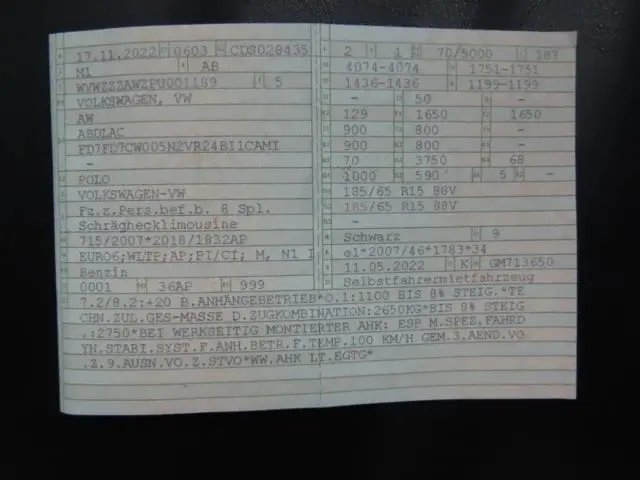 17.11.2022 0603 CDS028435
M1 AB
WVWZZZAWZPU001189 5
VOLKSWAGEN, VW
AW
ABDLAC
FD7FD7CW005N2VR24BI1CAMI
-
POLO
VOLKSWAGEN-VW
Fz.z.Pers.bef.b. 8 Spl.
Schräghecklimousine
715/2007*2018/1832AP
EURO6;WLTP;AP;PI/CI; M, N1 I
Benzin
0001 36AP 999
2 1 70/5000 187
4074-4074 1751-1751
1436-1436 1199-1199
- 50 -
129 1650 1650
900 800 -
900 800 -
70 3750 68
1000 590 5 -
185/65 R15 88V
185/65 R15 88V
-
Schwarz 9
e1*2007/46*1783*34
11.05.2022 K GM713650
Selbstfahrermietfahrzeug
7.2/8.2:+20 B.ANHÄNGEBETRIEB*O.1:1100 BIS 8% STEIG.*TE
CHN.ZUL.GES-MASSE D.ZUGKOMBINATION:2650KG*BIS 8% STEIG
.:2750*BEI WERKSEITIG MONTIERTER AHK: ESP M.SPEZ.FAHRD
YN.STABI.SYST.F.ANH.BETR.F.TEMP.100 KM/H GEM.3.AEND.VO
.Z.9.AUSN.VO.Z.STVO*WW.AHK LT.EGTG*